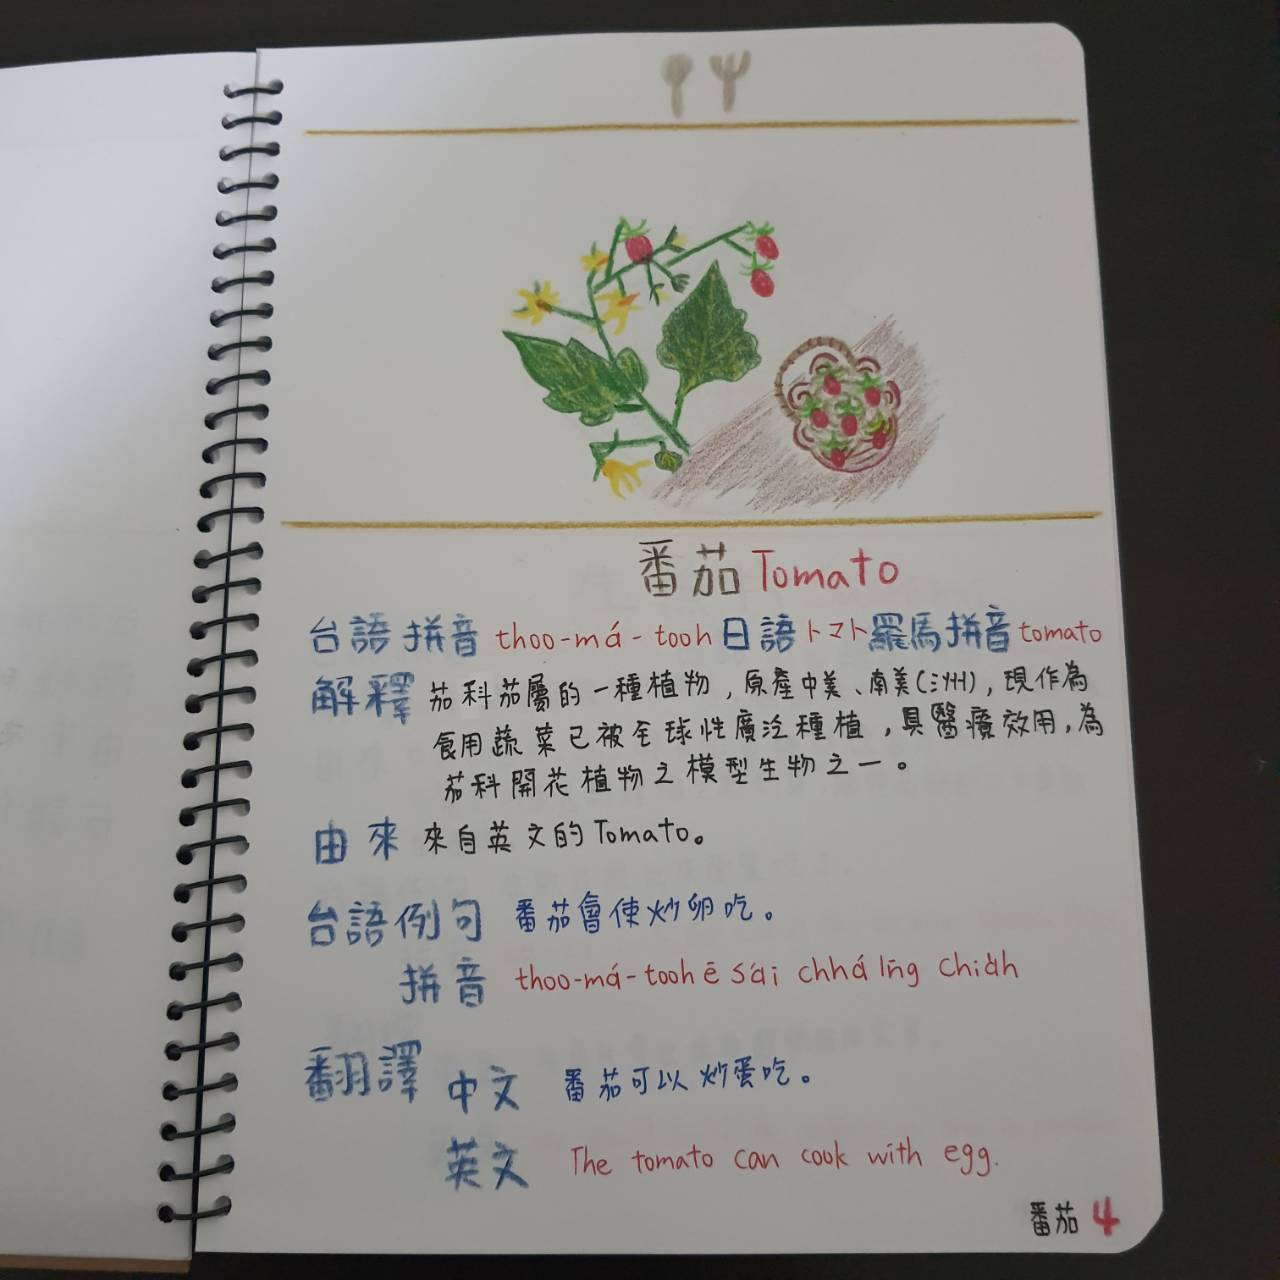 番茄Tomato
台語拼音 thoo-má-tooh日語トマト羅馬拼音tomato
解釋 茄科茄屬的一種植物，原產中美、南美(洲)，現作為
食用蔬菜已被全球性廣泛種植，具醫療效用，為
茄科開花植物之模型生物之一。
由來 來自英文的Tomato。
台語例句 番茄會使炒卵吃。
拼音 thoo-má-tooh ē sái chhá ln̄g chia̍h
翻譯 中文 番茄可以炒蛋吃。
英文 The tomato can cook with egg.
番茄 4